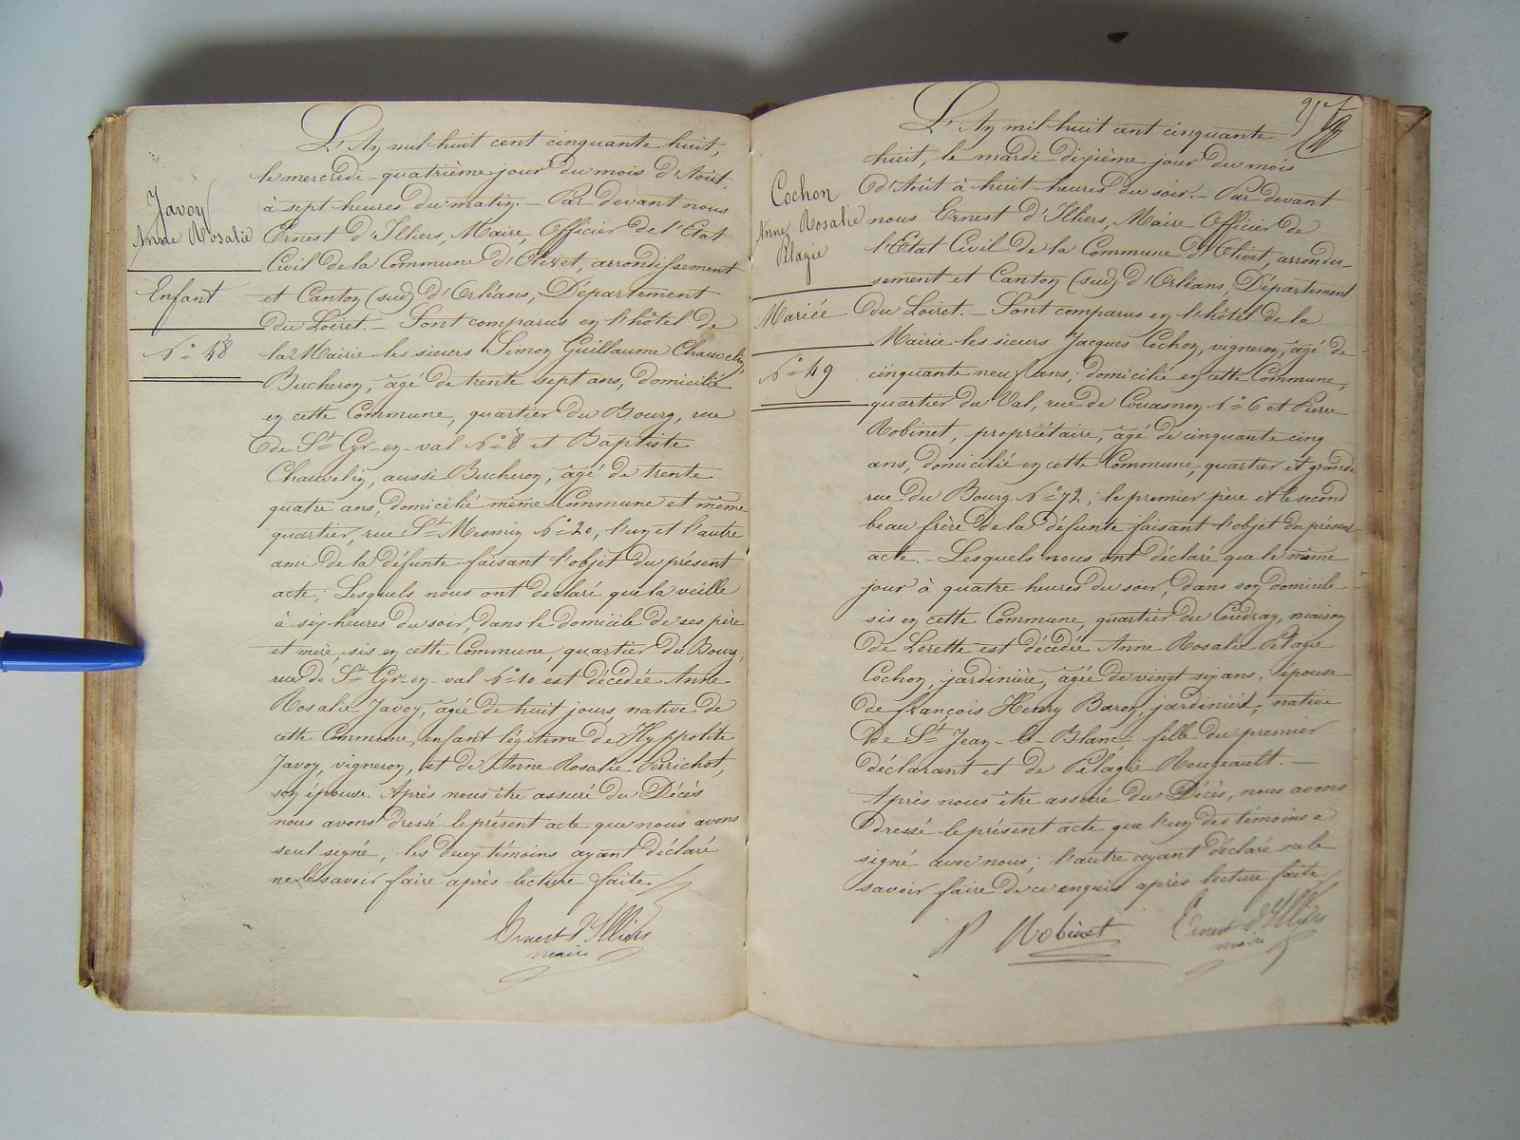 Javoy
Anne Rosalie
Enfant
N° 48
L'An mil huit cent cinquante huit,
le mercredi quatrième jour du mois d'Août.
à sept heures du matin. — Par devant nous
Ernest d'Illiers, Maire, Officier de l'Etat
Civil de la Commune d'Olivet, arrondissement
et Canton (sud) d'Orléans, Département
du Loiret. — Sont comparus en l'hôtel de
la Mairie les sieurs Simon Guillaume Chauvelin,
Bucheron, âgé de trente sept ans, domicilié
en cette Commune, quartier du Bourg, rue
de St Cyr-en-val N° 8 et Baptiste
Chauvelin, aussi Bucheron, âgé de trente
quatre ans, domicilié même Commune et même
quartier, rue St Mesmin N° 20, l'un et l'autre
ami de la défunte faisant l'objet du présent
acte; Lesquels nous ont déclaré que la veille
à six heures du soir, dans le domicile de ses père
et mère, sis en cette Commune, quartier du Bourg,
rue de St Cyr-en-val N° 10 est décédée Anne
Rosalie Javoy, âgée de huit jours, native de
cette Commune, enfant légitime de Hyppolite
Javoy, vigneron, et de Anne Rosalie Perrichot,
son épouse. Après nous être assuré du Décès
nous avons dressé le présent acte que nous avons
seul signé, les deux témoins ayant déclaré
ne le savoir faire après lecture faite.
Ernest d'Illiers
maire
257
Cochon
Anne Rosalie
Pélagie
Mariée
N° 49
L'An mil huit cent cinquante
huit, le mardi dixième jour du mois
d'Août à huit heures du soir. — Par devant
nous Ernest d'Illiers, Maire Officier de
l'Etat Civil de la Commune d'Olivet, arrondis-
sement et Canton (sud) d'Orléans, Département
du Loiret. — Sont comparus en l'hôtel de la
Mairie les sieurs Jacques Cochon, vigneron, âgé de
cinquante neuf ans, domicilié en cette Commune,
quartier du Val, rue de Couasnon N° 6 et Pierre
Robinet, propriétaire, âgé de cinquante cinq
ans, domicilié en cette Commune, quartier et grande
rue du Bourg N° 72; le premier père et le second
beau frère de la défunte faisant l'objet du présent
acte. — Lesquels nous ont déclaré que le même
jour à quatre heures du soir, dans son domicile
sis en cette Commune, quartier du Coudray, maison
de Lorette est décédée Anne Rosalie Pélagie
Cochon, jardinière, âgée de vingt six ans, épouse
de françois Henry Baron, jardinier, native
de St Jean-le-Blanc fille du premier
déclarant et de Pélagie Rousseault. —
Après nous être assuré du Décès, nous avons
dressé le présent acte que l'un des témoins a
signé avec nous; l'autre ayant déclaré ne le
savoir faire de ce enquis après lecture faite
P Robinet Ernest d'Illiers
maire